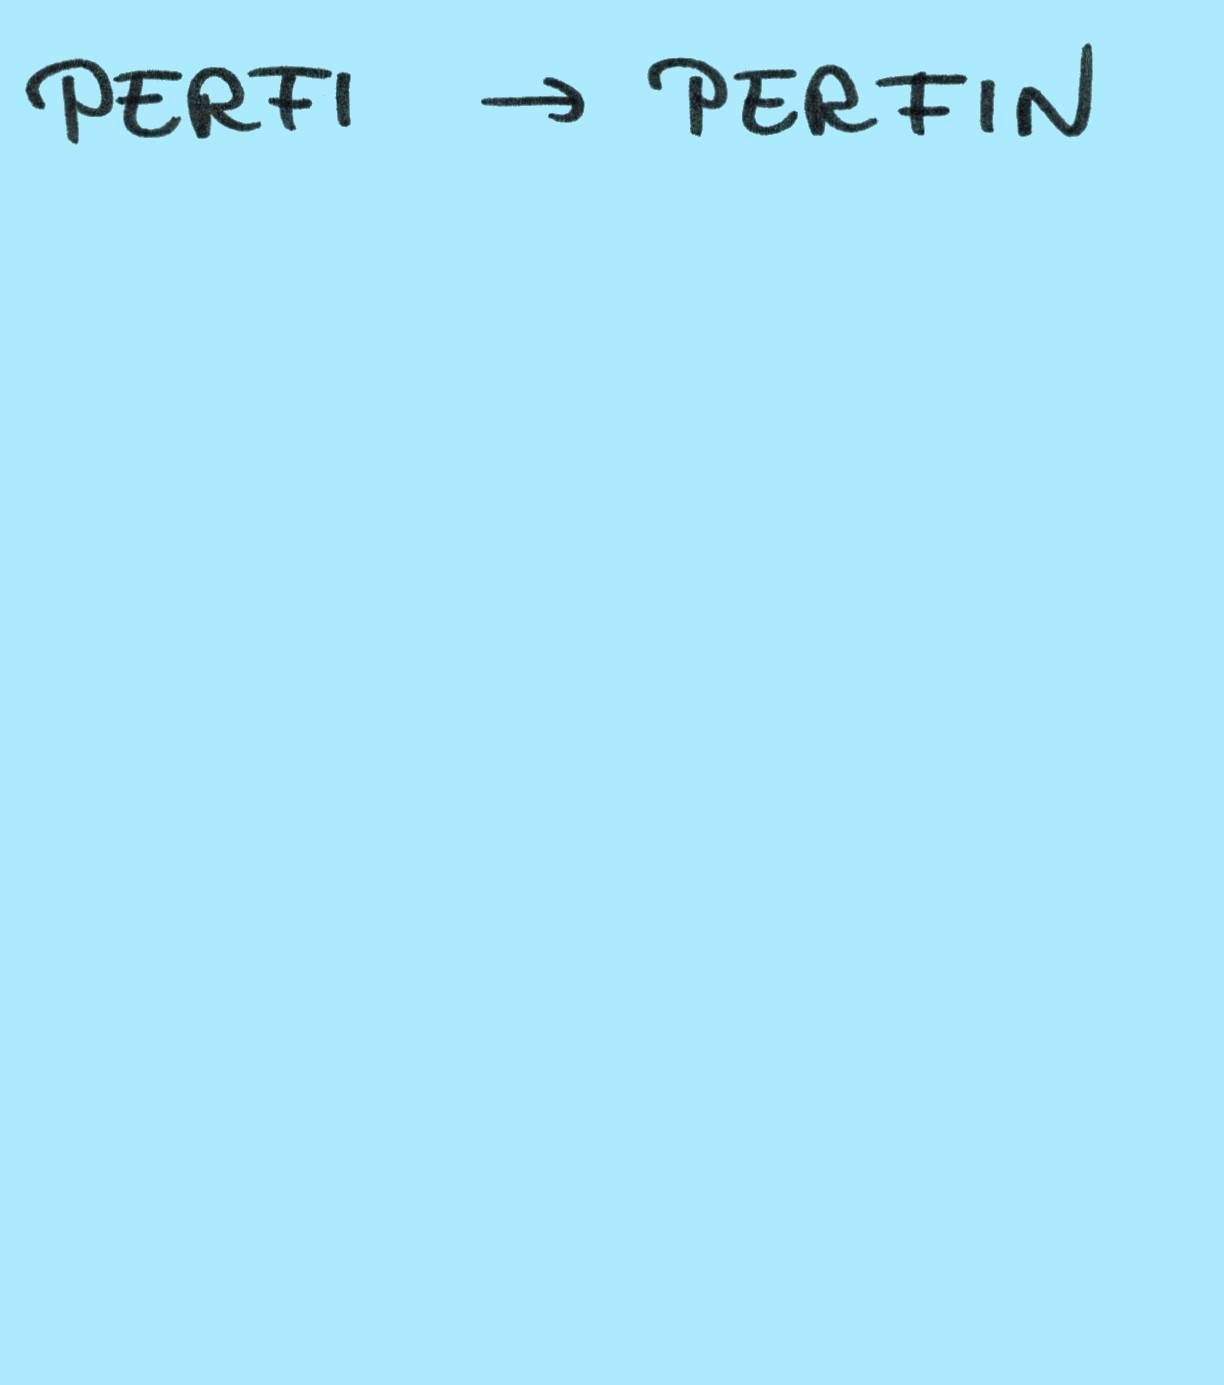 PERFI → PERFIN